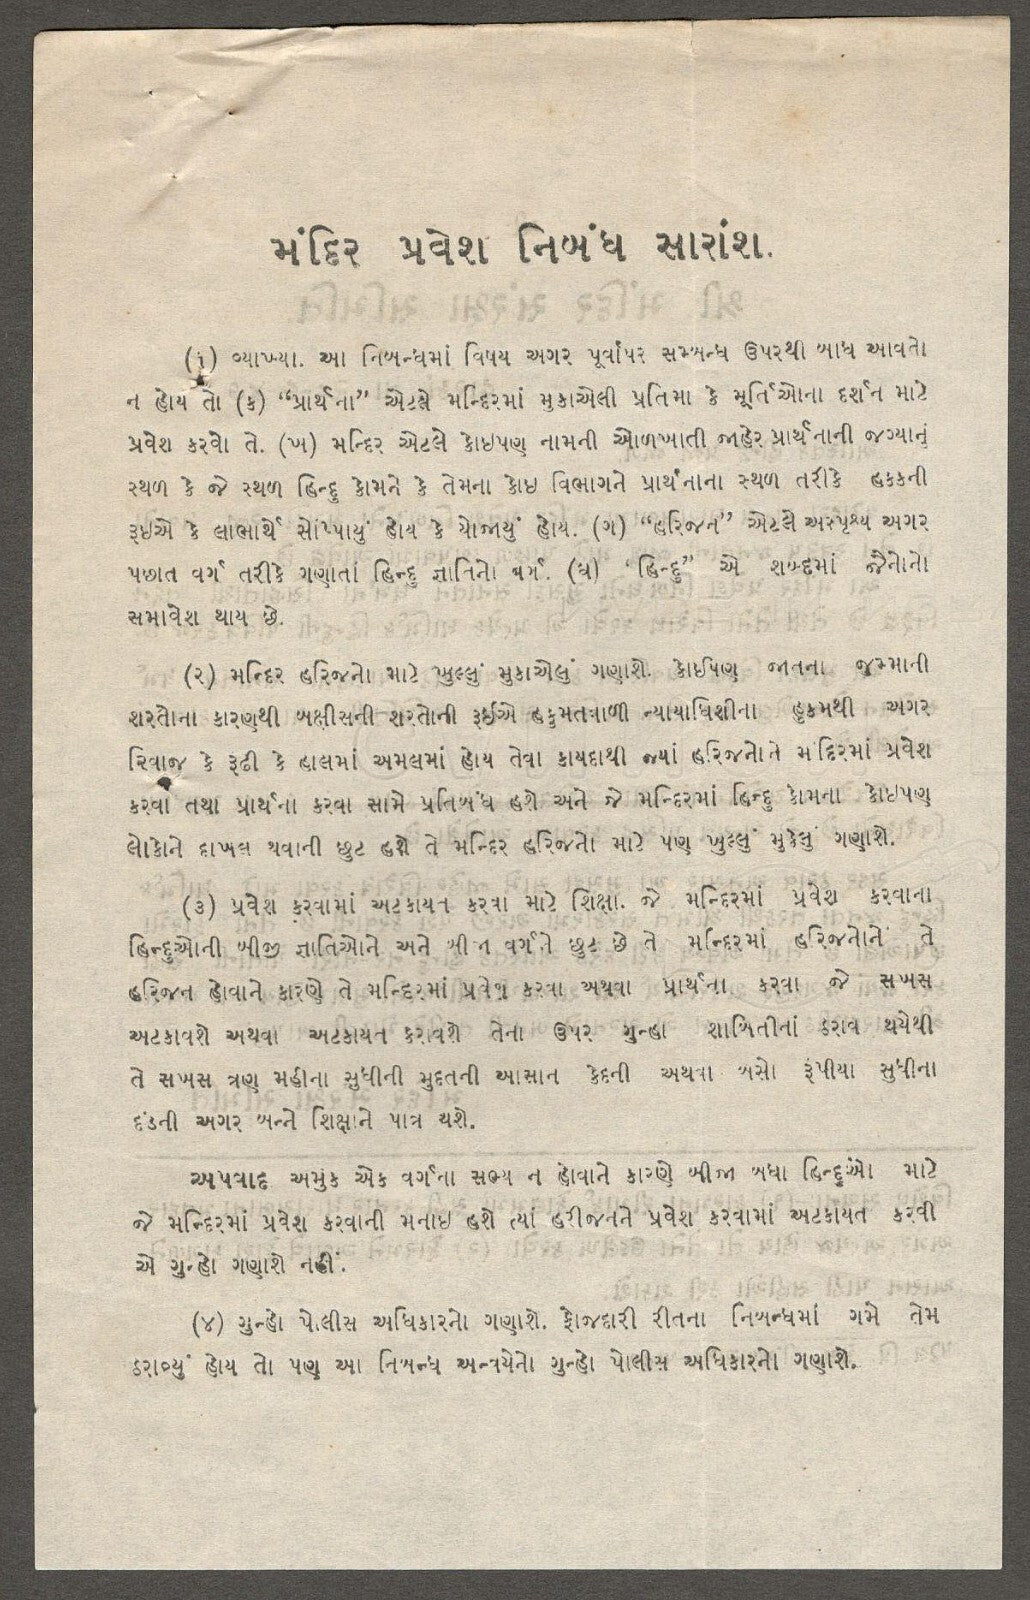 મંદિર પ્રવેશ નિબંધ સારાંશ.
(૧) વ્યાખ્યા. આ નિબન્ધમાં વિષય અગર પૂર્વાપર સમ્બન્ધ ઉપરથી બાધ આવતો
ન હોય તો (ક) “પ્રાર્થના” એટલે મન્દિરમાં મુકાએલી પ્રતિમા કે મૂર્તિઓના દર્શન માટે
પ્રવેશ કરવો તે. (ખ) મન્દિર એટલે કોઇપણ નામની ઓળખાતી જાહેર પ્રાર્થનાની જગ્યાનું
સ્થળ કે જે સ્થળ હિન્દુ કોમને કે તેમના કોઇ વિભાગને પ્રાર્થનાના સ્થળ તરીકે હકકની
રૂઇએ કે લાભાર્થે સોંપાયું હોય કે યોજાયું હોય. (ગ) “હરિજન” એટલે અસ્પૃશ્ય અગર
પછાત વર્ગ તરીકે ગણાતાં હિન્દુ જ્ઞાતિનો વર્ગ. (ઘ) “હિન્દુ” એ શબ્દમાં જૈનોનો
સમાવેશ થાય છે.
(૨) મન્દિર હરિજનો માટે ખુલ્લું મુકાએલું ગણાશે. કોઈપણ જાતના જુમ્માની
શરતોના કારણથી બક્ષીસની શરતોની રૂઈએ હકુમતવાળી ન્યાયાધિશીના હુકમથી અગર
રિવાજ કે રૂઢી કે હાલમાં અમલમાં હોય તેવા કાયદાથી જ્યાં હરિજનોને મંદિરમાં પ્રવેશ
કરવા તથા પ્રાર્થના કરવા સામે પ્રતિબંધ હશે અને જે મન્દિરમાં હિન્દુ કોમના કોઇપણ
લોકોને દાખલ થવાની છુટ હશે તે મન્દિર હરિજનો માટે પણ ખુલ્લું મુકેલું ગણાશે.
(૩) પ્રવેશ કરવામાં અટકાયત કરવા માટે શિક્ષા. જે મન્દિરમાં પ્રવેશ કરવાના
હિન્દુઓની બીજી જ્ઞાતિઓને અને બીજા વર્ગને છુટ છે તે મન્દિરમાં હરિજનોને તે
હરિજન હોવાને કારણે તે મન્દિરમાં પ્રવેશ કરવા અથવા પ્રાર્થના કરવા જે સખસ
અટકાવશે અથવા અટકાયત કરાવશે તેના ઉપર ગુન્હા શાબિતીનાં ઠરાવ થયેથી
તે સખસ ત્રણ મહીના સુધીની મુદતની આસાન કેદની અથવા બસો રૂંપીયા સુધીના
દંડની અગર બન્ને શિક્ષાને પાત્ર થશે.
અપવાદ અમુક એક વર્ગના સભ્ય ન હોવાને કારણે બીજા બધા હિન્દુઓ માટે
જે મન્દિરમાં પ્રવેશ કરવાની મનાઇ હશે ત્યાં હરીજનને પ્રવેશ કરવામાં અટકાયત કરવી
એ ગુન્હો ગણાશે નહીં.
(૪) ગુન્હો પોલીસ અધિકારનો ગણાશે. ફોજદારી રીતના નિબન્ધમાં ગમે તેમ
ઠરાવ્યું હોય તો પણ આ નિબન્ધ અન્વયેનો ગુન્હો પોલીસ અધિકારનો ગણાશે.